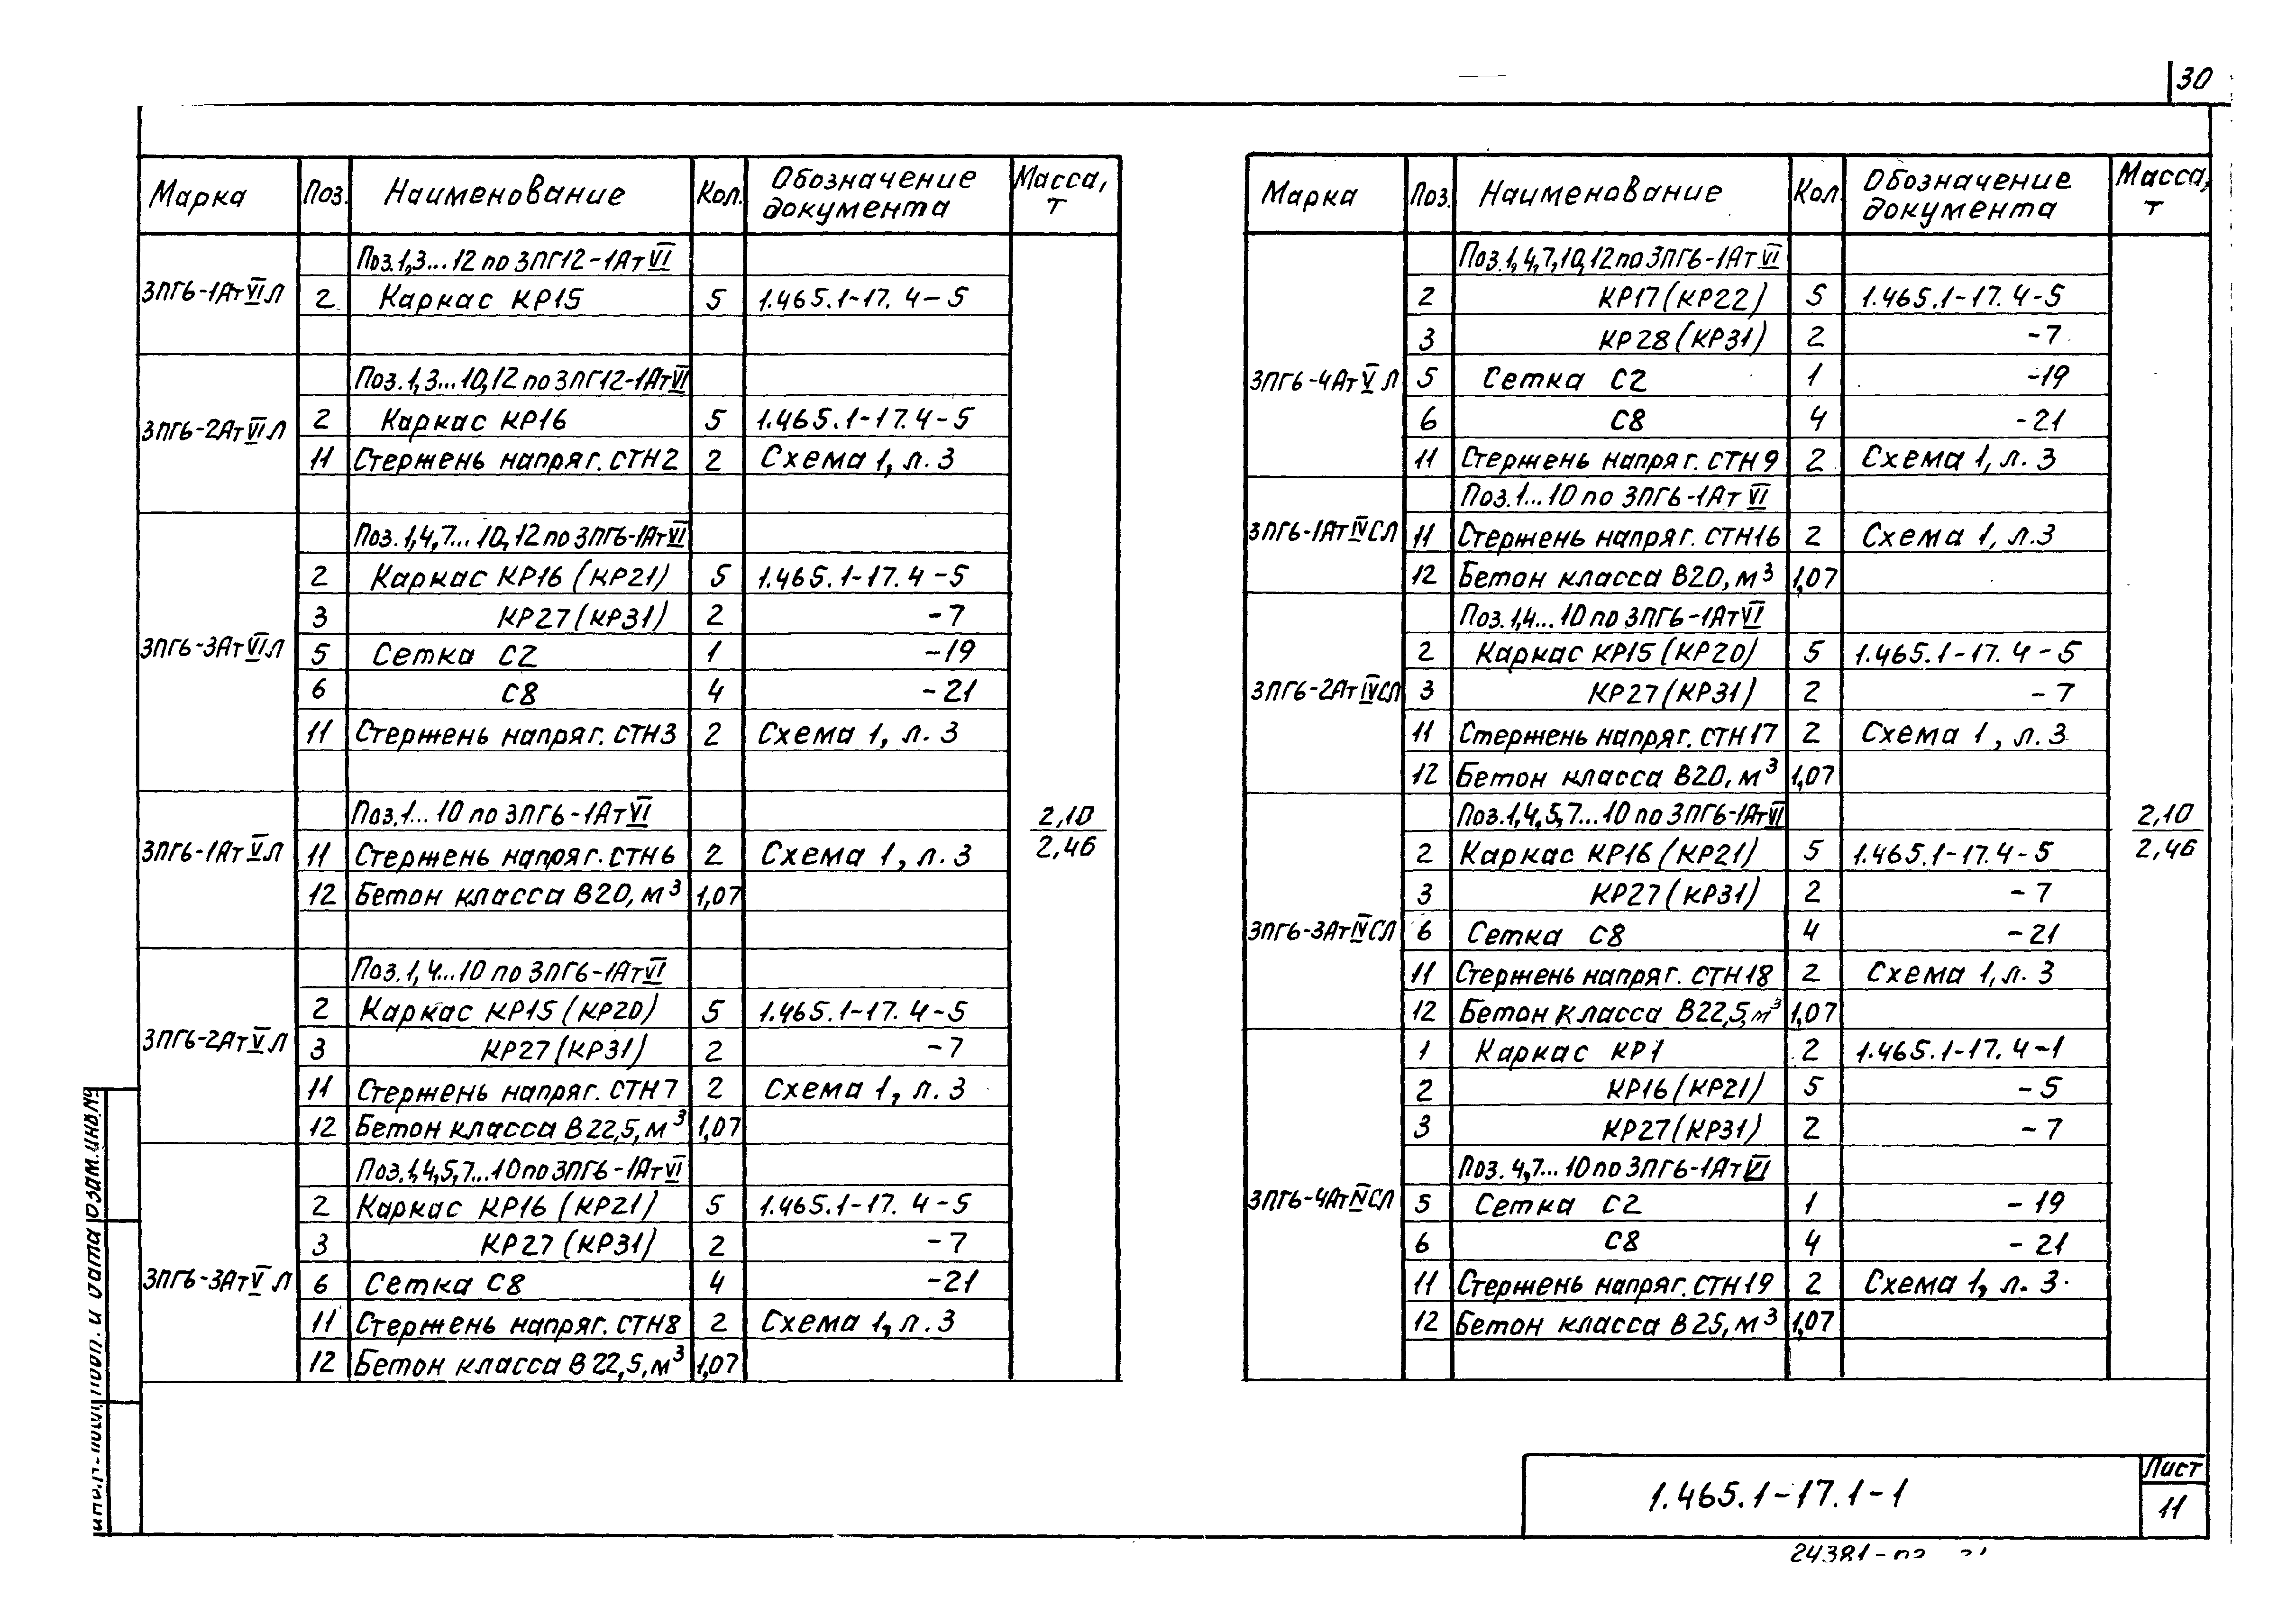 30
Марка Поз. Наименование Кол. Обозначение документа Масса, т
Поз.1,3...12 по 3ПГ12-1АтVI
3ПГ6-1АтVIЛ
2 Каркас КР15 5 1.465.1-17. 4-5
Поз.1,3...10,12 по 3ПГ12-1АтVI
3ПГ6-2АтVIЛ
2 Каркас КР16 5 1.465.1-17.4-5
11 Стержень напряг. СТН2 2 Схема 1, л. 3
Поз.1,4,7...10,12 по 3ПГ6-1АтVI
2 Каркас КР16 (КР21) 5 1.465.1-17. 4-5
3 КР27(КР31) 2 -7
3ПГ6-3АтVIЛ
5 Сетка С2 1 -19
6 С8 4 -21
11 Стержень напряг. СТН3 2 Схема 1, л. 3
Поз.1...10 по 3ПГ6-1АтVI
3ПГ6-1АтVЛ
11 Стержень напряг. СТН6 2 Схема 1, л. 3
12 Бетон класса В20, м³ 1,07
2,10
2,46
Поз.1,4...10 по 3ПГ6-1АтVI
2 Каркас КР15 (КР20) 5 1.465.1-17. 4-5
3ПГ6-2АтVЛ
3 КР27(КР31) 2 -7
11 Стержень напряг. СТН7 2 Схема 1, л. 3
12 Бетон класса В22,5, м³ 1,07
Поз.1,4,5,7...10 по 3ПГ6-1АтVI
2 Каркас КР16 (КР21) 5 1.465.1-17. 4-5
3 КР27 (КР31) 2 -7
3ПГ6-3АтVЛ
6 Сетка С8 4 -21
11 Стержень напряг. СТН8 2 Схема 1, л. 3
12 Бетон класса В22,5, м³ 1,07
Марка Поз. Наименование Кол. Обозначение документа Масса, т
Поз.1,4,7,10,12 по 3ПГ6-1АтVI
2 КР17(КР22) 5 1.465.1-17. 4-5
3 КР28(КР31) 2 -7
3ПГ6-4АтVЛ
5 Сетка С2 1 -19
6 С8 4 -21
11 Стержень напряг. СТН9 2 Схема 1, л. 3
Поз.1...10 по 3ПГ6-1АтVI
3ПГ6-1АтIVСЛ
11 Стержень напряг. СТН16 2 Схема 1, л.3
12 Бетон класса В20, м³ 1,07
Поз.1,4...10 по 3ПГ6-1АтVI
2 Каркас КР15 (КР20) 5 1.465.1-17. 4-5
3ПГ6-2АтIVСЛ
3 КР27(КР31) 2 -7
11 Стержень напряг. СТН17 2 Схема 1, л. 3
12 Бетон класса В20, м³ 1,07
Поз.1,4,5,7...10 по 3ПГ6-1АтVI
2 Каркас КР16 (КР21) 5 1.465.1-17.4-5
3 КР27(КР31) 2 -7
3ПГ6-3АтIVСЛ
6 Сетка С8 4 -21
11 Стержень напряг. СТН18 2 Схема 1, л. 3
12 Бетон класса В22,5, м³ 1,07
2,10
2,46
1 Каркас КР1 2 1.465.1-17. 4-1
2 КР16(КР21) 5 -5
3 КР27(КР31) 2 -7
Поз. 4,7...10 по 3ПГ6-1АтVI
3ПГ6-4АтIVСЛ
5 Сетка С2 1 -19
6 С8 4 -21
11 Стержень напряг. СТН19 2 Схема 1, л. 3
12 Бетон класса В25, м³ 1,07
Взам.инв.№
Подп. и дата
1.465.1-17.1-1
Лист
11
24381-